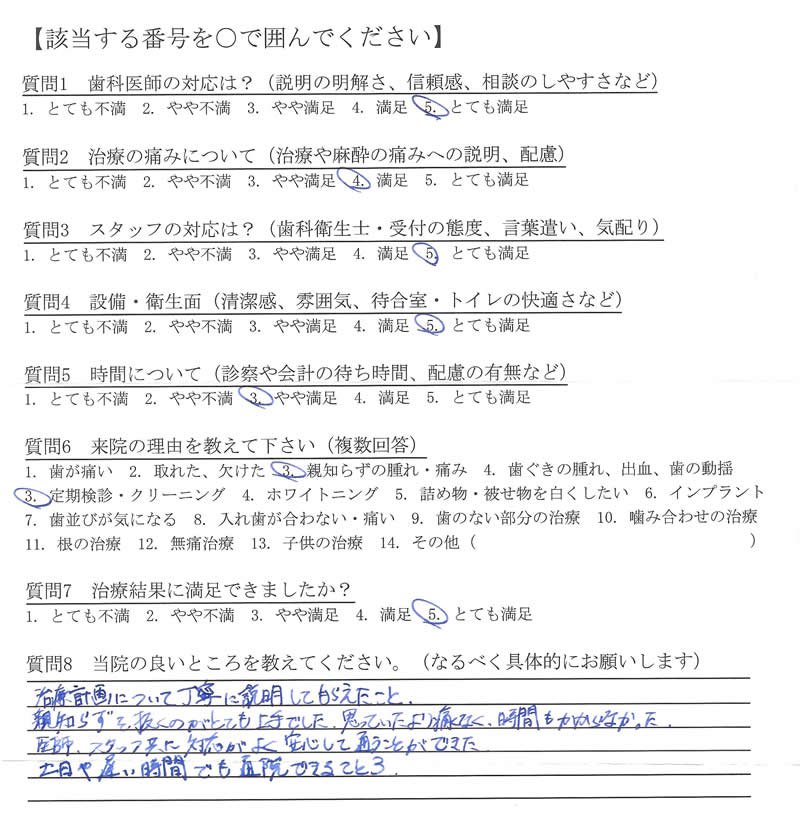 【該当する番号を○で囲んでください】
質問1 歯科医師の対応は？（説明の明解さ、信頼感、相談のしやすさなど）
1. とても不満 2. やや不満 3. やや満足 4. 満足 5. とても満足
質問2 治療の痛みについて（治療や麻酔の痛みへの説明、配慮）
1. とても不満 2. やや不満 3. やや満足 4. 満足 5. とても満足
質問3 スタッフの対応は？（歯科衛生士・受付の態度、言葉遣い、気配り）
1. とても不満 2. やや不満 3. やや満足 4. 満足 5. とても満足
質問4 設備・衛生面（清潔感、雰囲気、待合室・トイレの快適さなど）
1. とても不満 2. やや不満 3. やや満足 4. 満足 5. とても満足
質問5 時間について（診察や会計の待ち時間、配慮の有無など）
1. とても不満 2. やや不満 3. やや満足 4. 満足 5. とても満足
質問6 来院の理由を教えて下さい（複数回答）
1. 歯が痛い 2. 取れた、欠けた 3. 親知らずの腫れ・痛み 4. 歯ぐきの腫れ、出血、歯の動揺
3. 定期検診・クリーニング 4. ホワイトニング 5. 詰め物・被せ物を白くしたい 6. インプラント
7. 歯並びが気になる 8. 入れ歯が合わない・痛い 9. 歯のない部分の治療 10. 噛み合わせの治療
11. 根の治療 12. 無痛治療 13. 子供の治療 14. その他（ ）
質問7 治療結果に満足できましたか？
1. とても不満 2. やや不満 3. やや満足 4. 満足 5. とても満足
質問8 当院の良いところを教えてください。（なるべく具体的にお願いします）
治療計画について丁寧に説明してもらえたこと.
親知らずを抜くのがとても上手でした. 思っていたより痛くなく、時間もかからなかった.
医師、スタッフ共に対応がよく安心して通うことができた
土日や遅い時間でも通院できるところ.